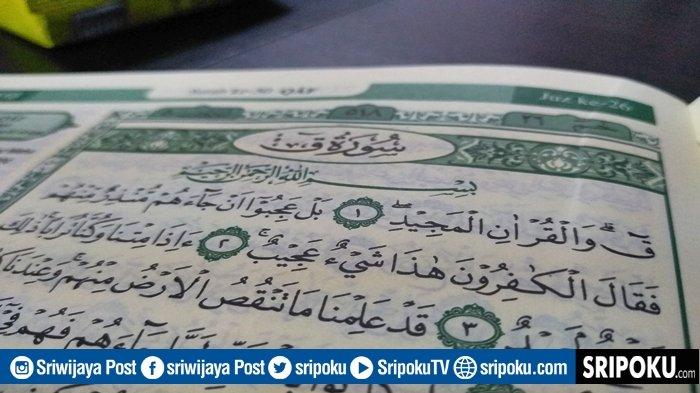 Juz ke-26
سُوْرَةُ قٓ
بِسْمِ اللّٰهِ الرَّحْمٰنِ الرَّحِيْمِ
قٓ ۗ وَالْقُرْاٰنِ الْمَجِيْدِۖ ١ بَلْ عَجِبُوْٓا اَنْ جَاۤءَهُمْ مُّنْذِرٌ مِّنْهُمْ
فَقَالَ الْكٰفِرُوْنَ هٰذَا شَيْءٌ عَجِيْبٌ ۚ ٢ ءَاِذَا مِتْنَا وَكُنَّا تُرَابًا ۚ ذٰلِكَ
٣ قَدْ عَلِمْنَا مَا تَنْقُصُ الْاَرْضُ مِنْهُمْ ۚ وَعِنْدَنَا
Sriwijaya Post sriwijaya Post sripoku SripokuTV sripoku.com
SRIPOKU.com